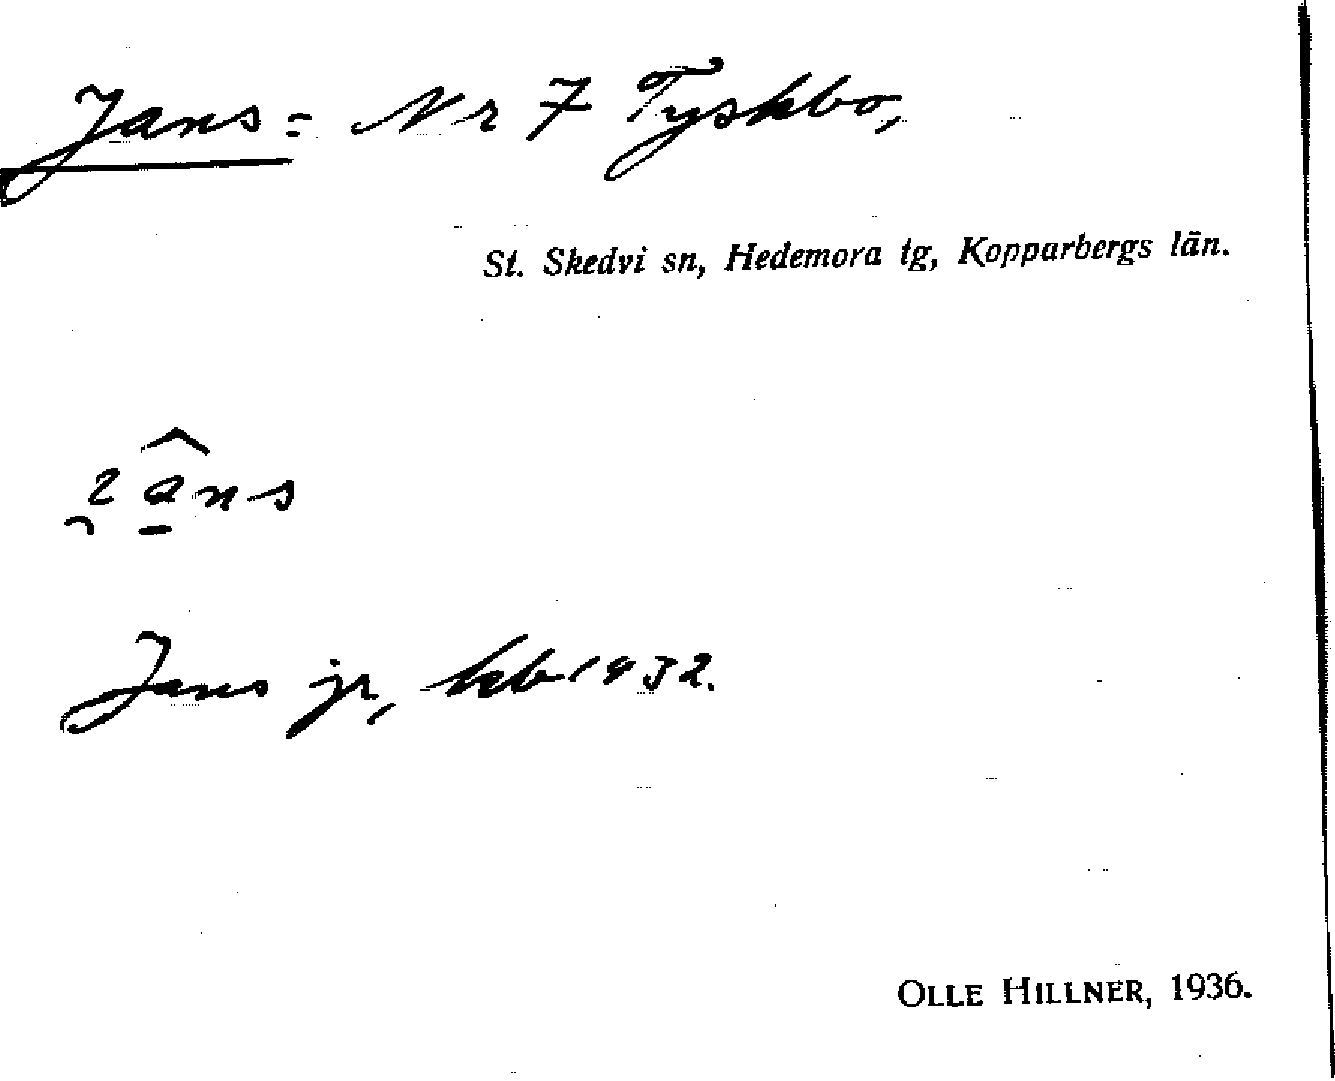 Jans = Nr 7 Tyskbo,
St. Skedvi sn, Hedemora tg, Kopparbergs län.
Jans jr, kb 1932.
OLLE HILLNER, 1936.